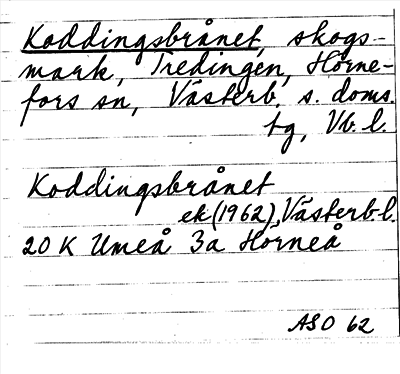 Koddingsbrånet, skogs-
mark, Tredingen, Hörne-
fors sn, Västerb. s. doms.
tg, Vb. l.
Koddingsbrånet
ek (1962), Västerb. l.
20 K Umeå 3a Hörneå
ASO 62